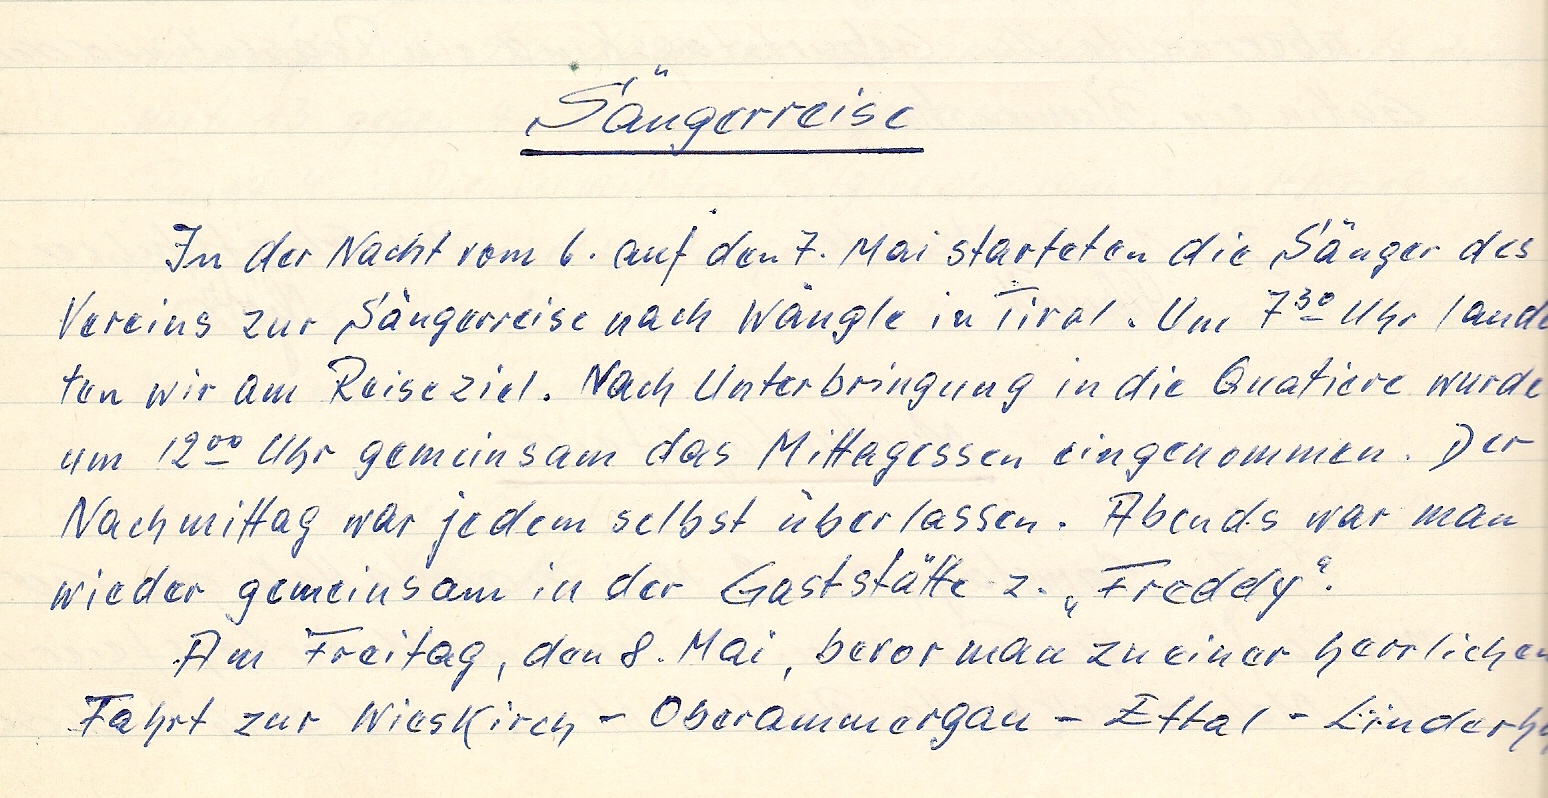 Sängerreise
In der Nacht vom 6. auf den 7. Mai starteten die Sänger des
Vereins zur Sängerreise nach Wängle in Tirol. Um 7³⁰ Uhr lande
ten wir am Reiseziel. Nach Unterbringung in die Quatiere wurde
um 12⁰⁰ Uhr gemeinsam das Mittagessen eingenommen. Der
Nachmittag war jedem selbst überlassen. Abends war man
wieder gemeinsam in der Gaststätte z. „Freddy“.
Am Freitag, den 8. Mai, bevor man zu einer herrlichen
Fahrt zur Wieskirch - Oberammergau - Ettal - Linderh